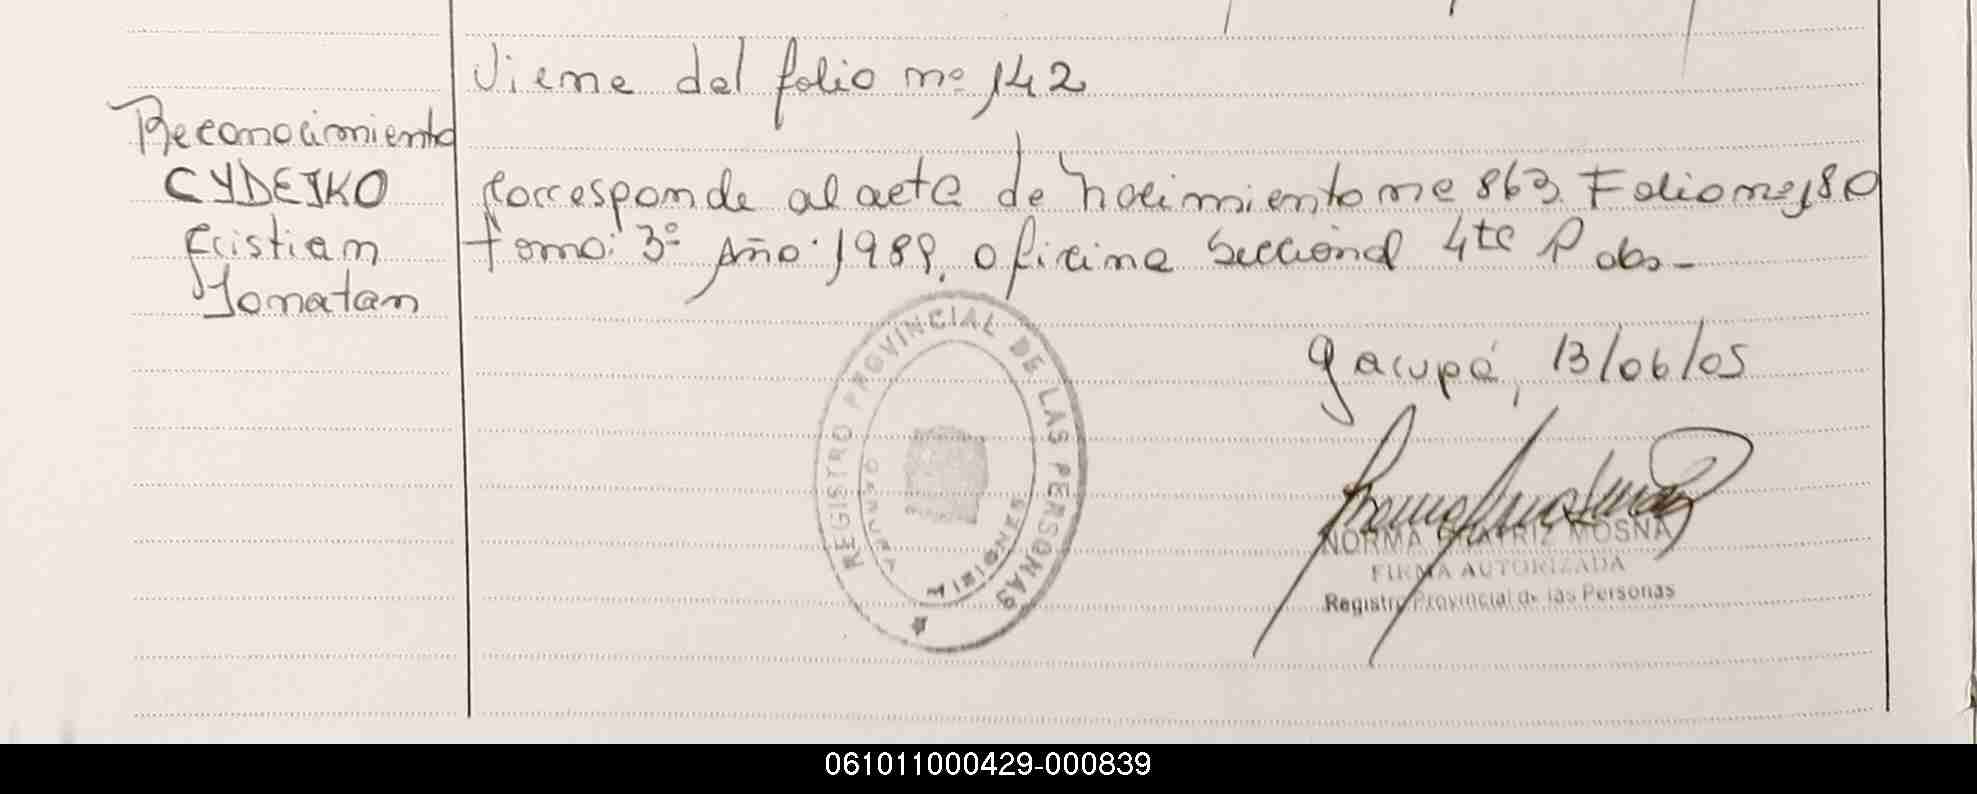 Viene del folio nº 142
Reconocimiento
CYDEJKO
Cristian
Jonatan
Corresponde al acta de Nacimiento nº 863. Folio nº 180
tomo: 3º Año: 1989. Oficina Seccional 4ta Pdas-
Garupá, 13/06/05
REGISTRO PROVINCIAL DE LAS PERSONAS
MISIONES
NORMA BEATRIZ MOSNA
FIRMA AUTORIZADA
Registro Provincial de las Personas
061011000429-000839